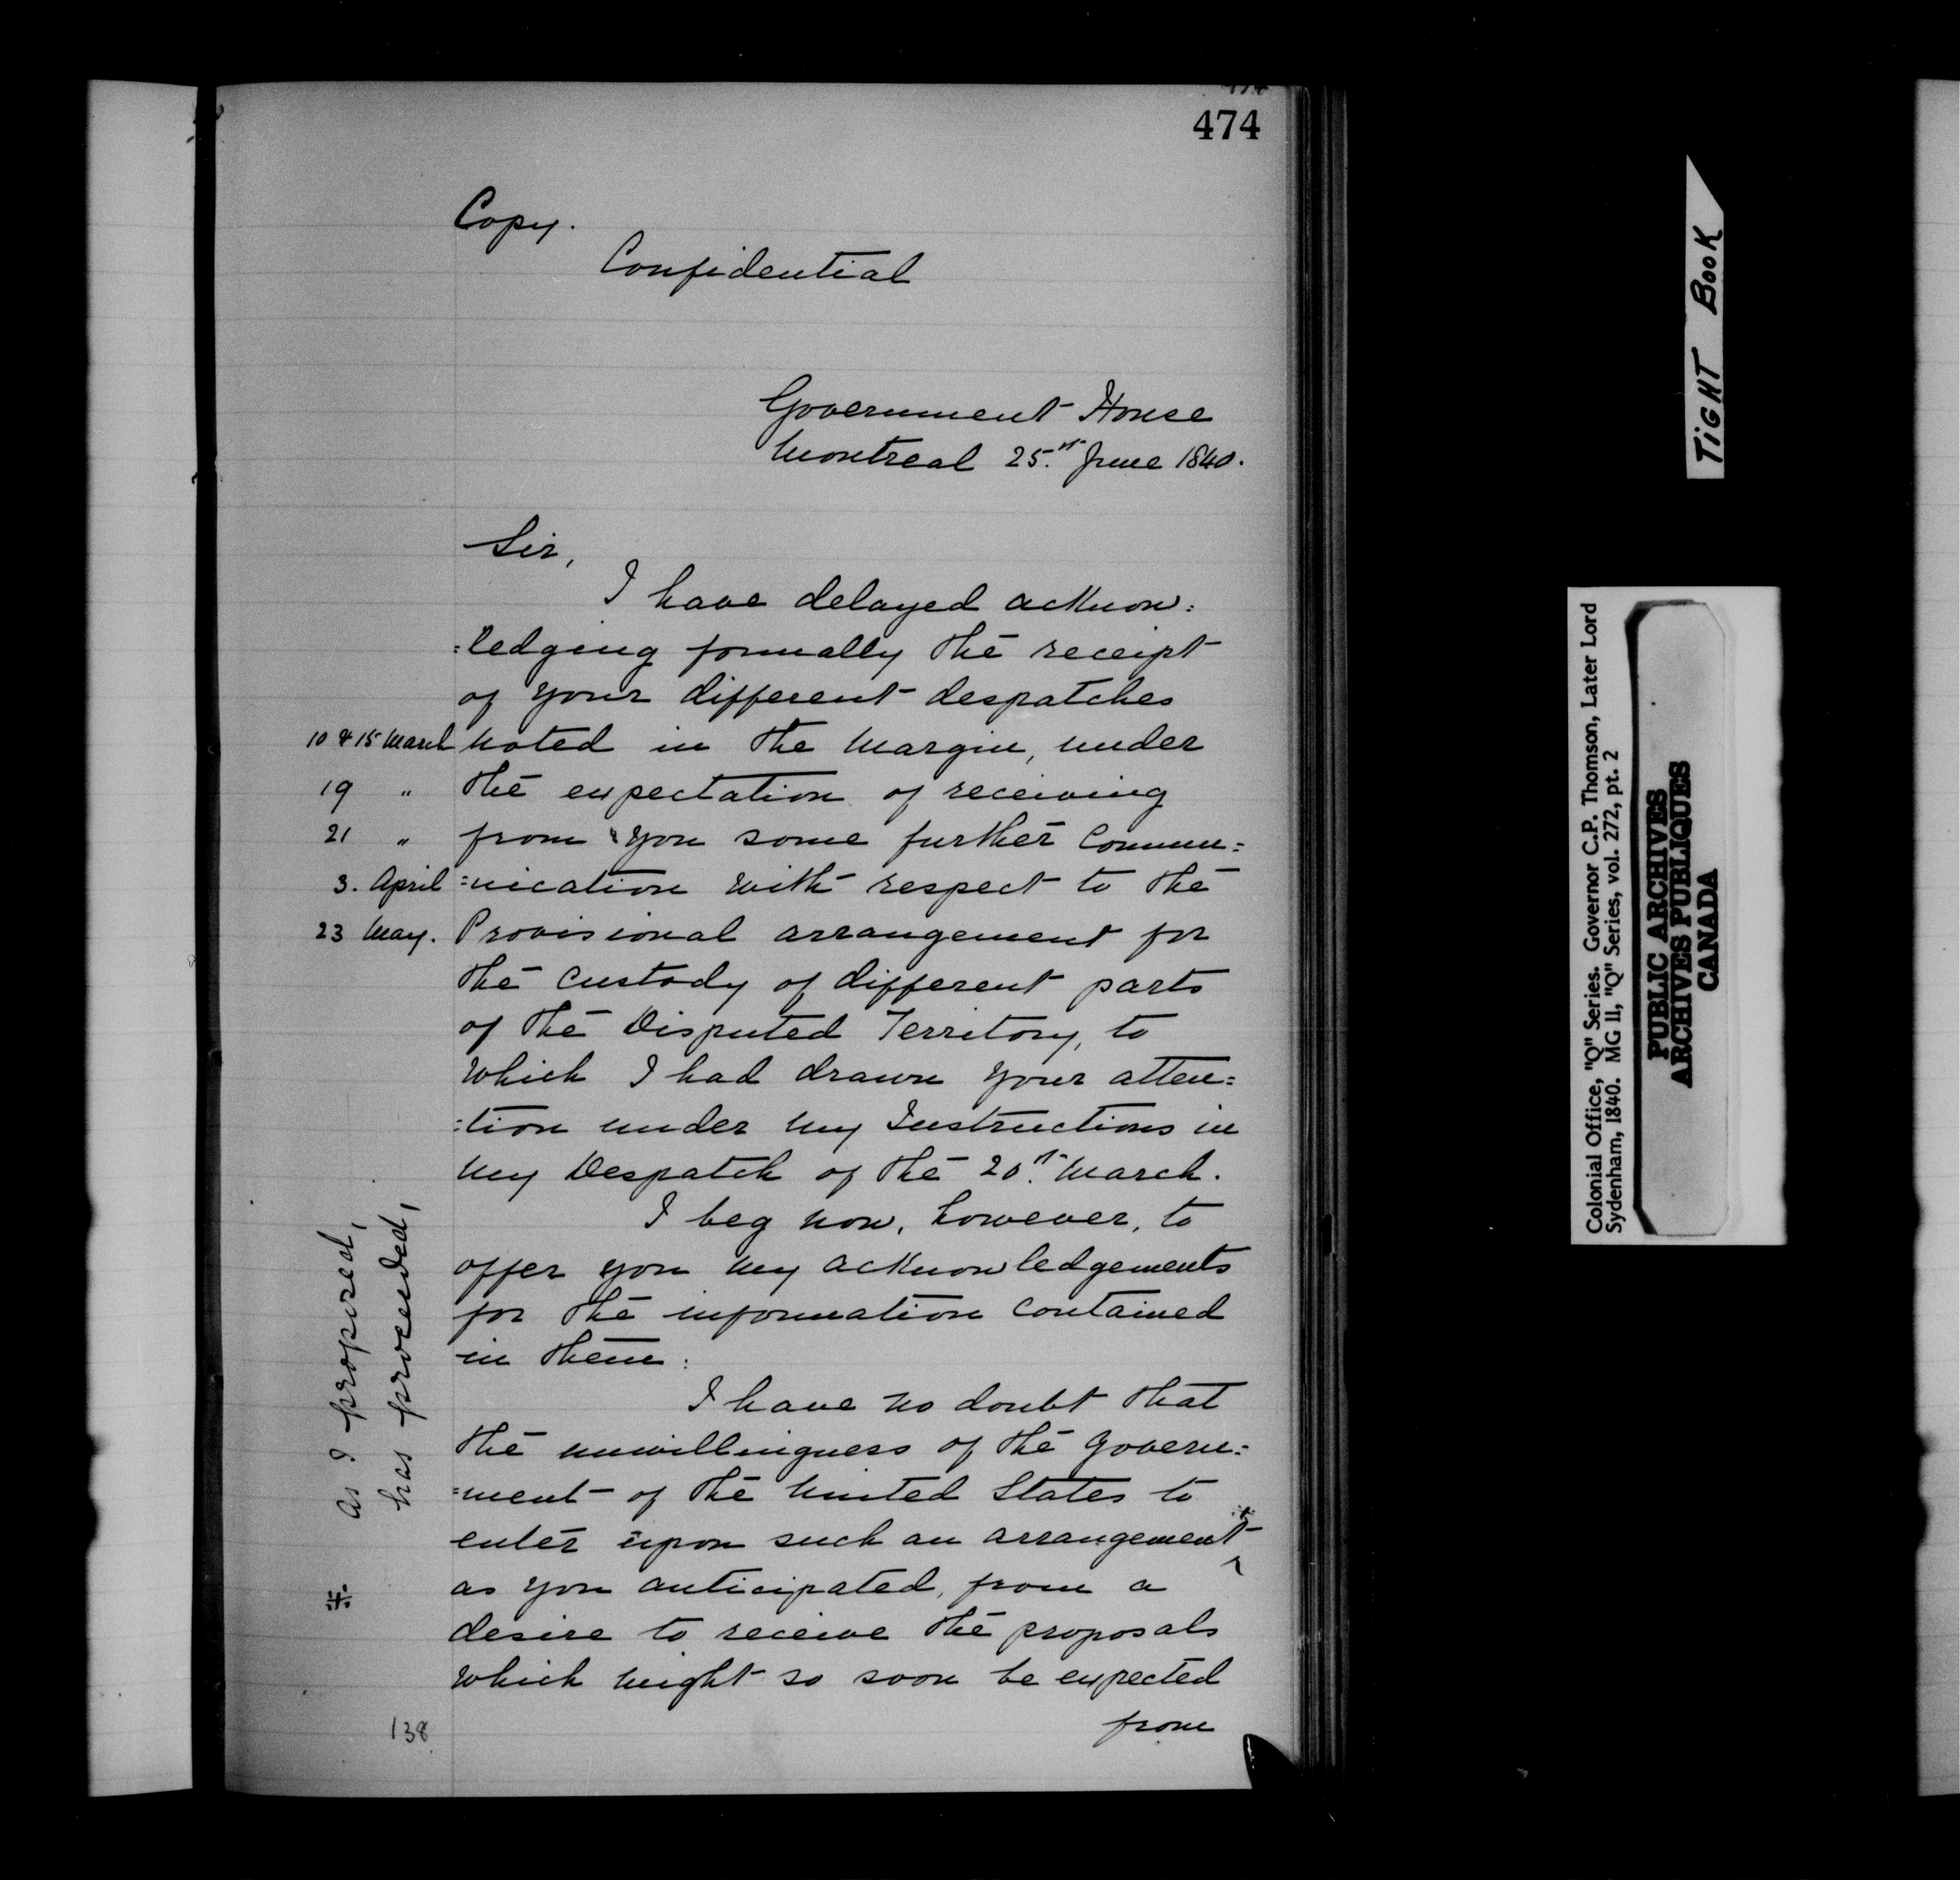 474
Copy.
Confidential
Government House
Montreal 25.th June 1840.
Sir,
I have delayed acknow:
:ledging formally the receipt
of your different despatches
10 & 15 March noted in the margin, under
19 " the expectation of receiving
21 " from you some further commu:
3. April :nication with respect to the
23 May. Provisional arrangement for
the custody of different parts
of the Disputed Territory, to
which I had drawn your atten:
:tion under my Instructions in
my Despatch of the 20.th March.
I beg now, however, to
offer you my acknowledgements
for the information contained
in them:
I have no doubt that
the unwillingness of the Govern:
:ment of the United States to
enter upon such an arrangement
as you anticipated, from a
desire to receive the proposals
which might so soon be expected
from
as I proposed,
has proceeded,
138
TIGHT BOOK
Colonial Office, "Q" Series. Governor C.P. Thomson, Later Lord
Sydenham, 1840. MG 11, "Q" Series, vol. 272, pt. 2
PUBLIC ARCHIVES
ARCHIVES PUBLIQUES
CANADA